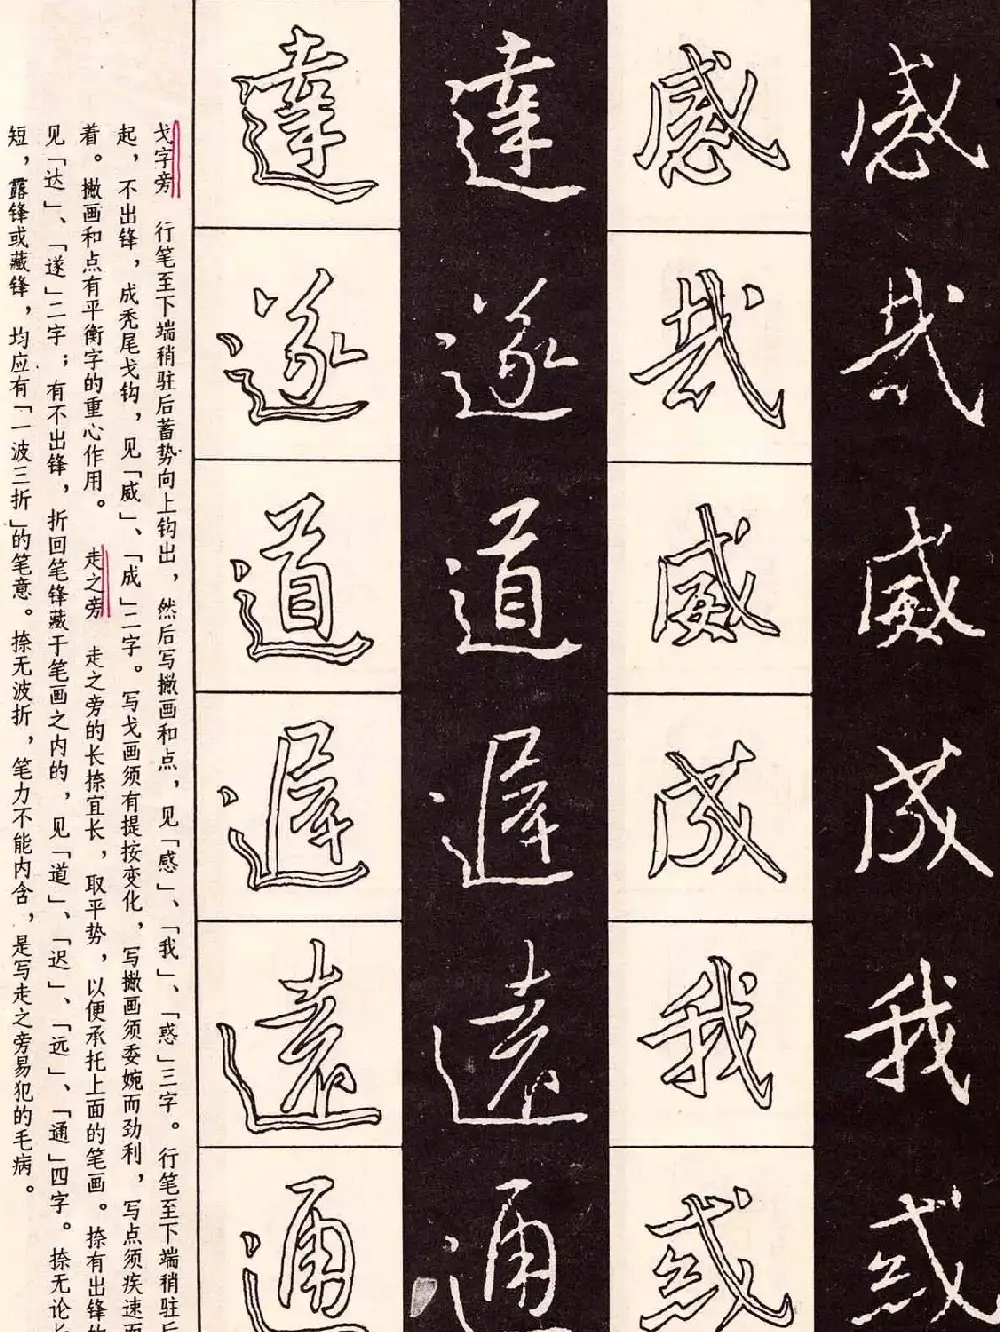 感哉威成我惑
感哉威成我惑
達遂道遲遠通
達遂道遲遠通
戈字旁 行笔至下端稍驻后蓄势向上钩出，然后写撇画和点，见「感」、「我」、「惑」三字。行笔至下端稍驻后
起，不出锋，成秃尾戈钩，见「威」、「成」二字。写戈画须有提按变化，写撇画须委婉而劲利，写点须疾速而
着。撇画和点有平衡字的重心作用。 走之旁 走之旁的长捺宜长，取平势，以便承托上面的笔画。捺有出锋的
见「达」、「遂」二字；有不出锋，折回笔锋藏于笔画之内的，见「道」、「迟」、「远」、「通」四字。捺无论长
短，露锋或藏锋，均应有「一波三折」的笔意。捺无波折，笔力不能内含，是写走之旁易犯的毛病。